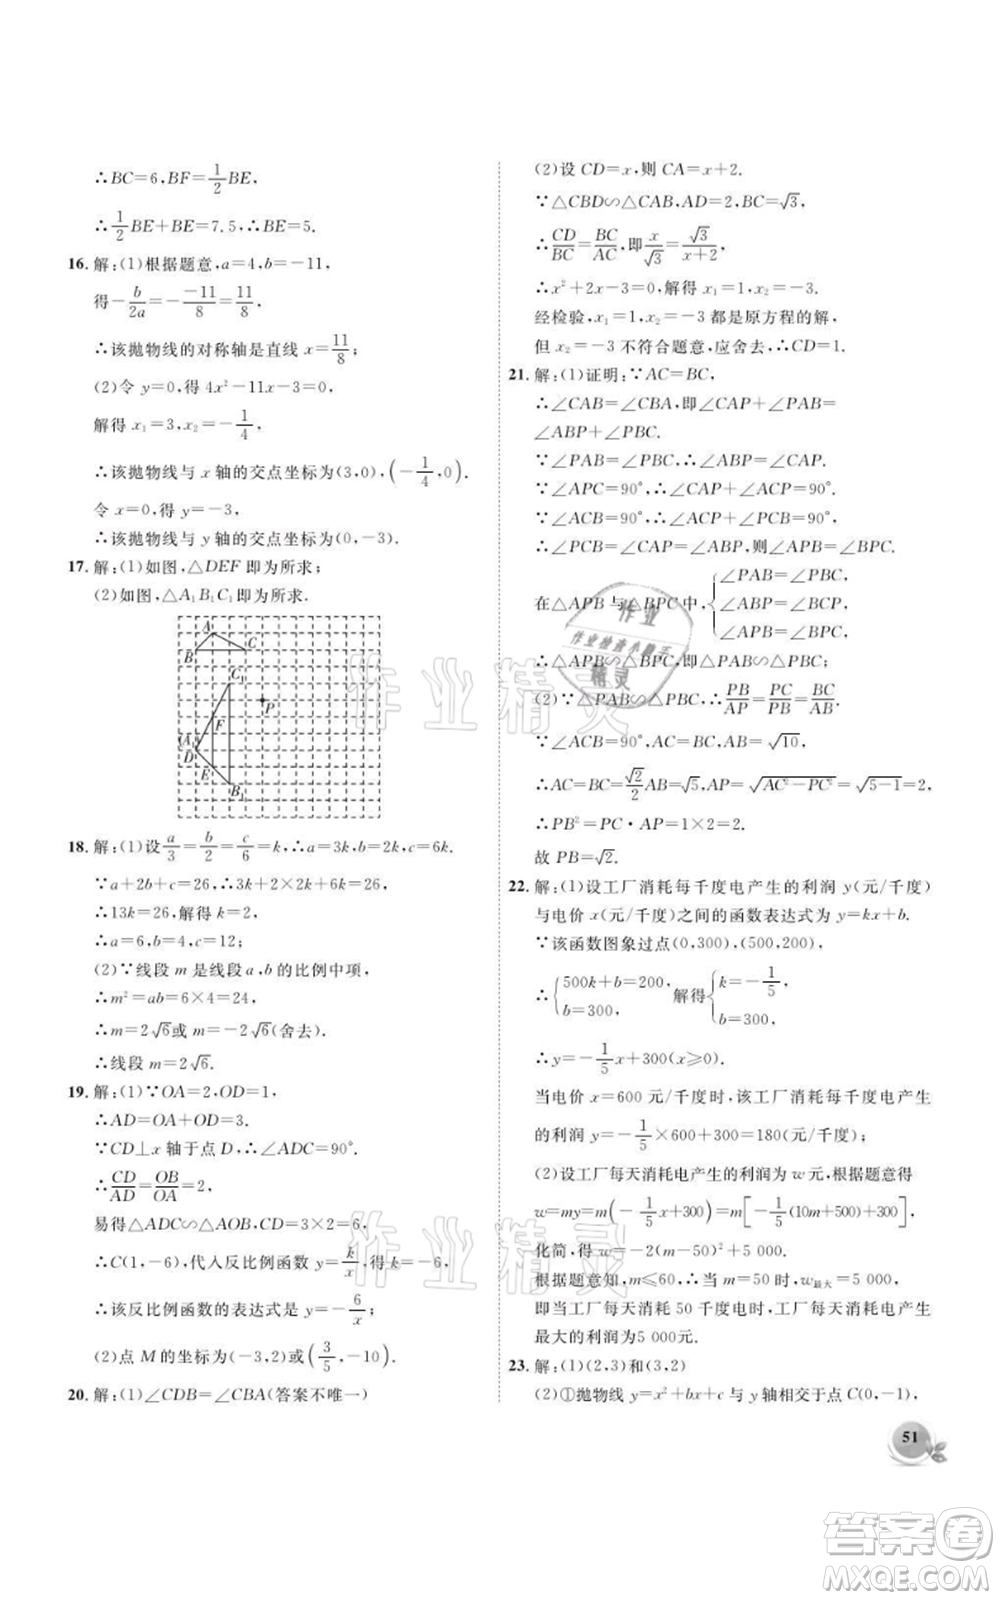 ∴BC=6,BF=1/2BE,
∴1/2BE+BE=7.5,∴BE=5.
16.解:(1)根据题意,a=4,b=-11,
得-b/2a=-(-11)/8=11/8,
∴该抛物线的对称轴是直线 x=11/8;
(2)令 y=0,得 4x²-11x-3=0,
解得 x₁=3,x₂=-1/4,
∴该抛物线与 x 轴的交点坐标为(3,0),(-1/4,0).
令 x=0,得 y=-3,
∴该抛物线与 y 轴的交点坐标为(0,-3).
17.解:(1)如图,△DEF 即为所求;
(2)如图,△A₁B₁C₁即为所求.
A
B
C
C₁
P
F
(A₁)
D
E
B₁
18.解:(1)设a/3=b/2=c/6=k,∴a=3k,b=2k,c=6k.
∵a+2b+c=26,∴3k+2×2k+6k=26,
∴13k=26,解得 k=2,
∴a=6,b=4,c=12;
(2)∵线段 m 是线段 a,b 的比例中项,
∴m²=ab=6×4=24,
∴m=2√6或 m=-2√6(舍去).
∴线段 m=2√6.
19.解:(1)∵OA=2,OD=1,
∴AD=OA+OD=3.
∵CD⊥x 轴于点 D,∴∠ADC=90°.
∴CD/AD=OB/OA=2,
易得△ADC∽△AOB,CD=3×2=6,
∴C(1,-6),代入反比例函数 y=k/x,得 k=-6,
∴该反比例函数的表达式是 y=-6/x;
(2)点 M 的坐标为(-3,2)或(3/5,-10).
20.解:(1)∠CDB=∠CBA(答案不唯一)
(2)设 CD=x,则 CA=x+2.
∵△CBD∽△CAB,AD=2,BC=√3,
∴CD/BC=BC/AC,即x/√3=√3/(x+2).
∴x²+2x-3=0,解得 x₁=1,x₂=-3.
经检验,x₁=1,x₂=-3 都是原方程的解,
但 x₂=-3 不符合题意,应舍去,∴CD=1.
21.解:(1)证明:∵AC=BC,
∴∠CAB=∠CBA,即∠CAP+∠PAB=
∠ABP+∠PBC.
∵∠PAB=∠PBC,∴∠ABP=∠CAP.
∵∠APC=90°,∴∠CAP+∠ACP=90°.
∵∠ACB=90°,∴∠ACP+∠PCB=90°.
∴∠PCB=∠CAP=∠ABP,则∠APB=∠BPC.
在△APB 与△BPC中,{∠PAB=∠PBC, ∠ABP=∠BCP, ∠APB=∠BPC,
∴△APB∽△BPC,即△PAB∽△PBC;
(2)∵△PAB∽△PBC,∴PB/AP=PC/PB=BC/AB.
∵∠ACB=90°,AC=BC,AB=√10,
∴AC=BC=√2/2AB=√5,AP=√(AC²-PC²)=√(5-1)=2,
∴PB²=PC·AP=1×2=2.
故 PB=√2.
22.解:(1)设工厂消耗每千度电产生的利润 y(元/千度)
与电价 x(元/千度)之间的函数表达式为 y=kx+b.
∵该函数图象过点(0,300),(500,200),
∴{500k+b=200, b=300, 解得{k=-1/5, b=300.
∴y=-1/5x+300(x≥0).
当电价 x=600 元/千度时,该工厂消耗每千度电产生
的利润 y=-1/5×600+300=180(元/千度);
(2)设工厂每天消耗电产生的利润为 w 元,根据题意得
w=my=m(-1/5x+300)=m[-1/5(10m+500)+300]
化简,得 w=-2(m-50)²+5 000.
根据题意知,m≤60,∴当 m=50 时,w最大=5 000,
即当工厂每天消耗 50 千度电时,工厂每天消耗电产生
最大的利润为5 000元.
23.解:(1)(2,3)和(3,2)
(2)①抛物线 y=x²+bx+c 与 y 轴相交于点 C(0,-1),
51
作业精灵
作业
作业检查小助手
精灵
作业精灵
答案卷
MXQE.COM